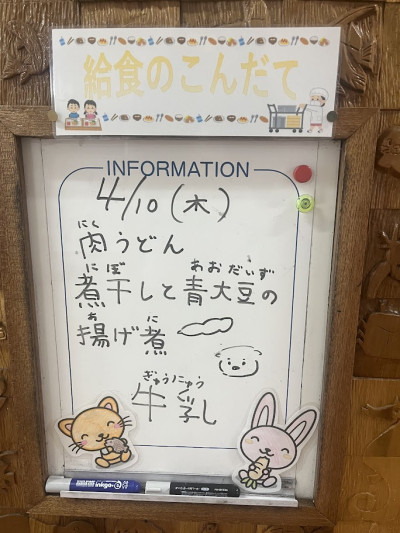 給食のこんだて
INFORMATION
4/10(木)
にく
肉うどん
にぼ あおだいず
煮干しと青大豆の
あ に
揚げ煮
ぎゅうにゅう
牛乳